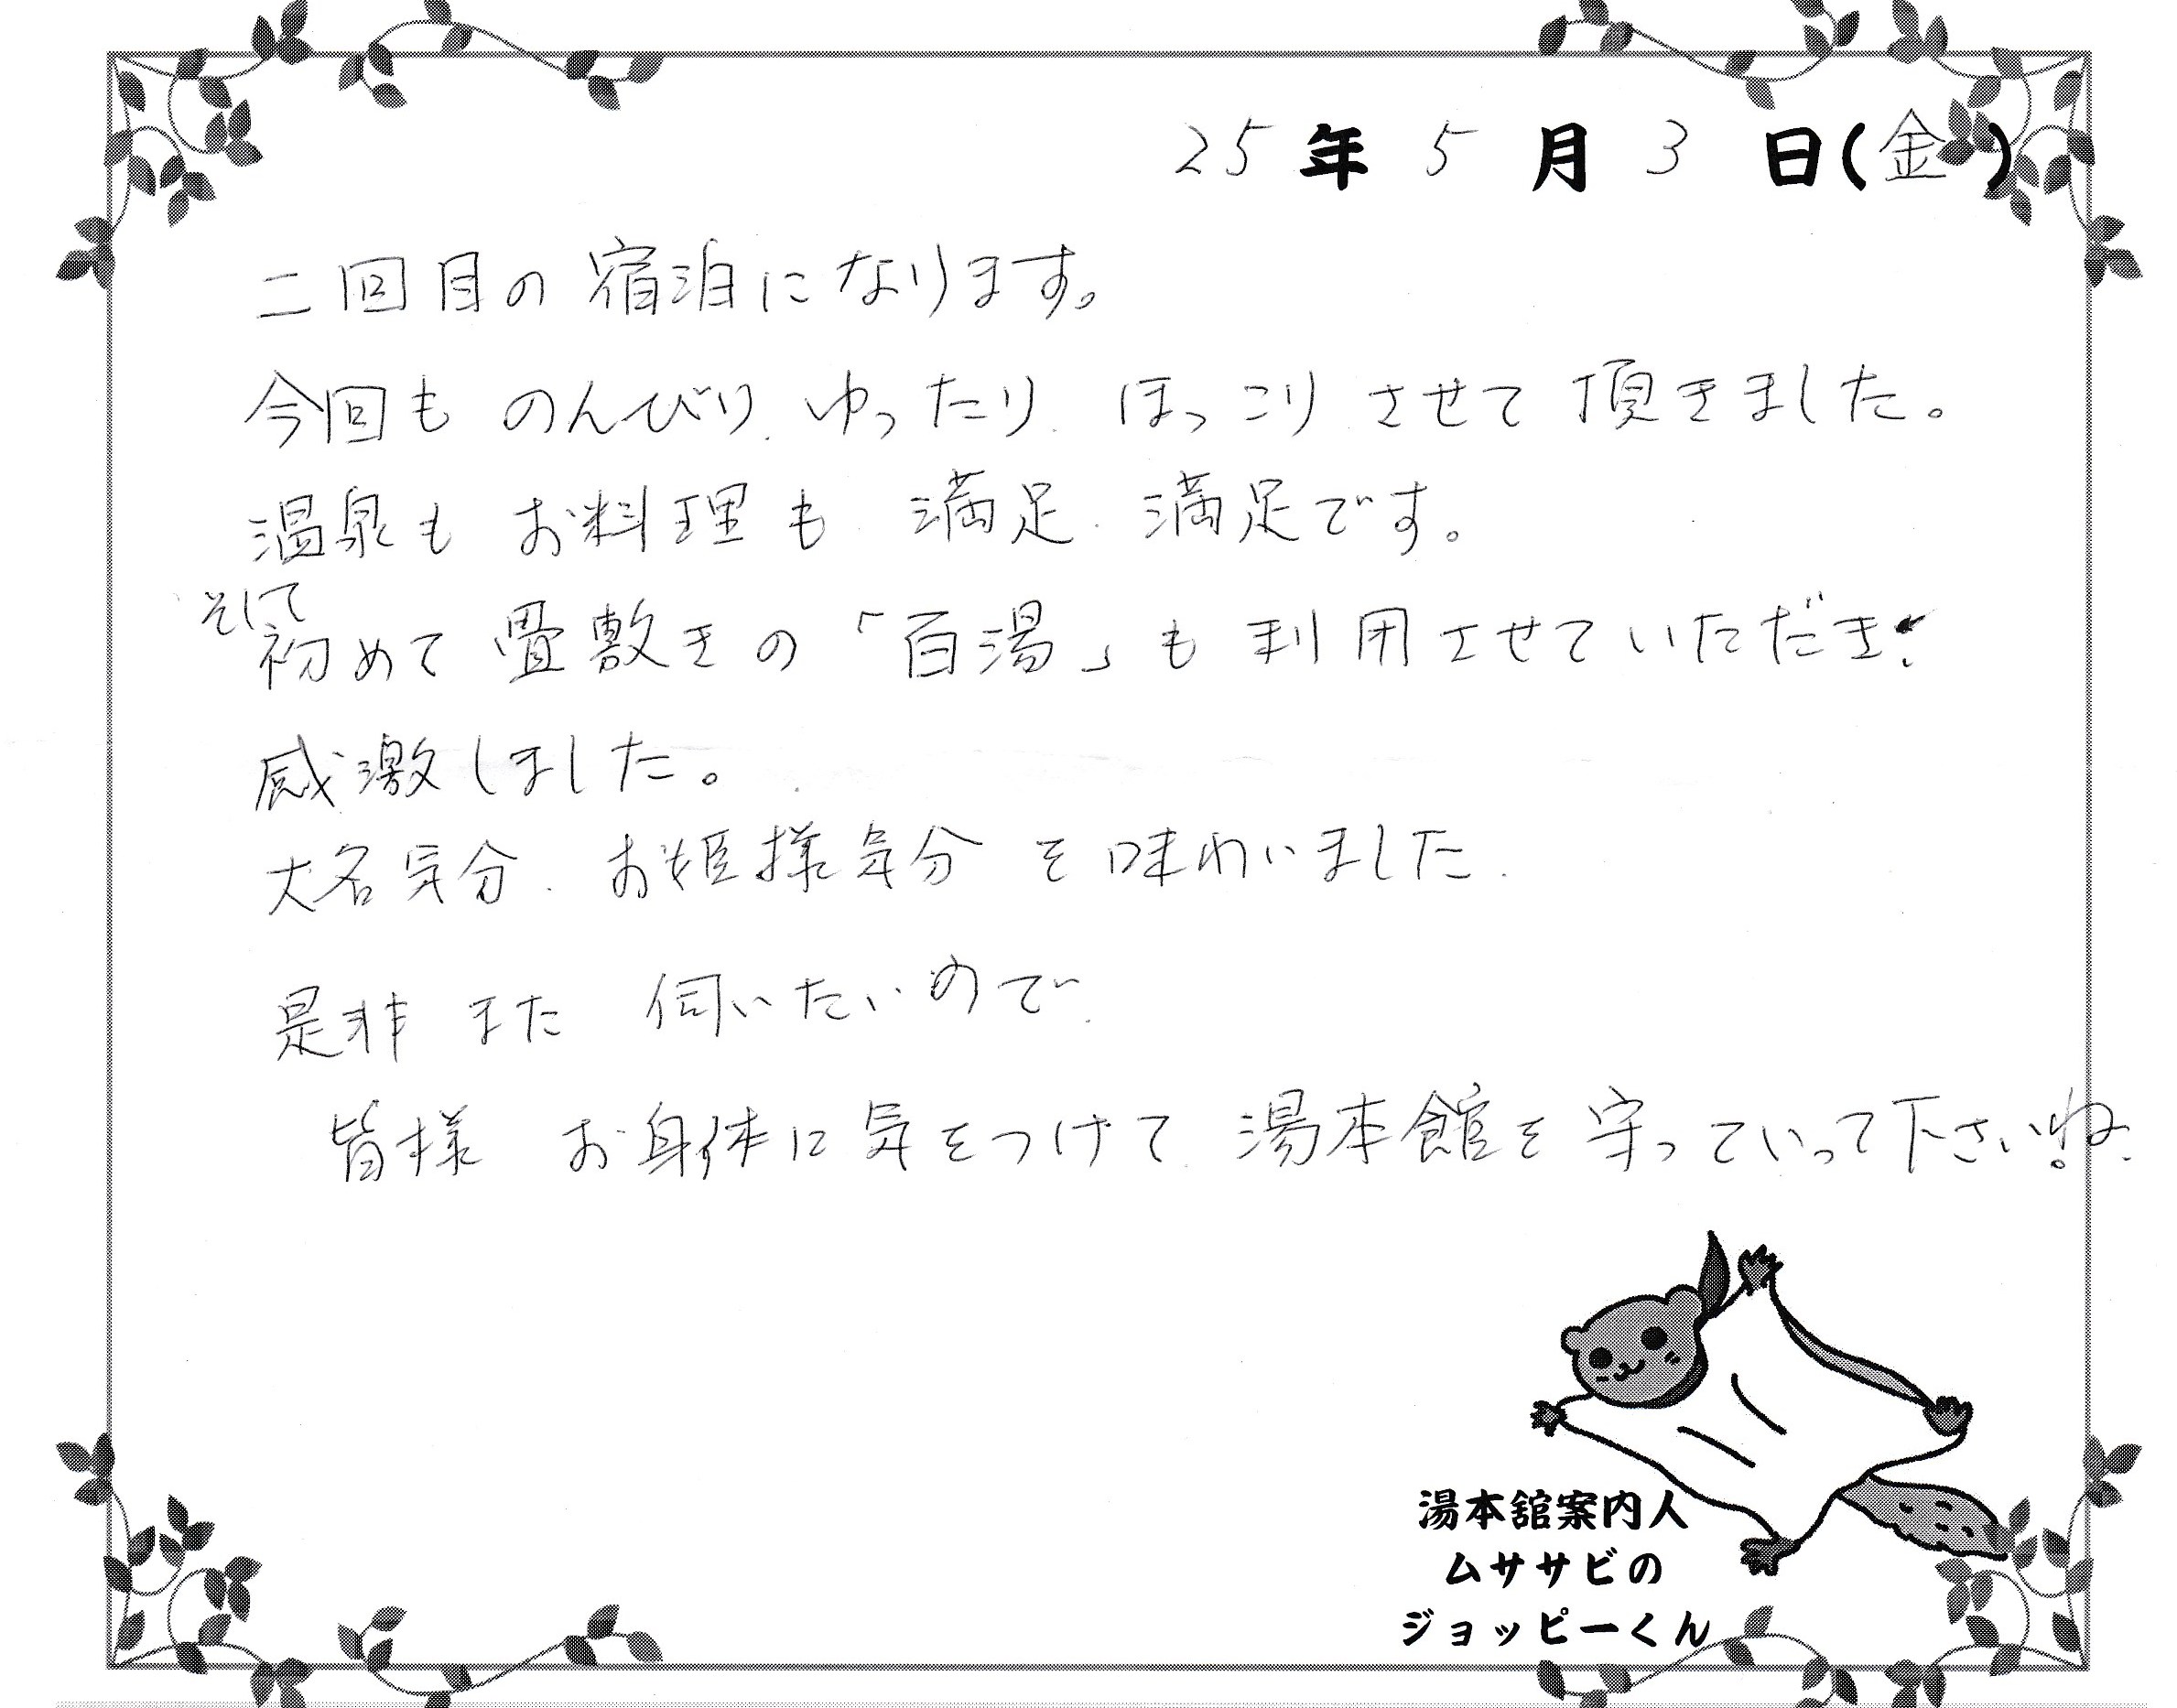 25年5月3日(金)
二回目の宿泊になります。
今回も のんびり、ゆったり、ほっこり させて 頂きました。
温泉も お料理も 満足、満足です。
そして
初めて 畳敷きの「百湯」も 利用させていただき、
感激しました。
大名気分、お姫様気分 を 味わいました。
是非 また 伺いたいので、
皆様 お身体に 気をつけて、湯本館を 守っていって下さいね。
湯本舘案内人
ムササビの
ジョッピーくん